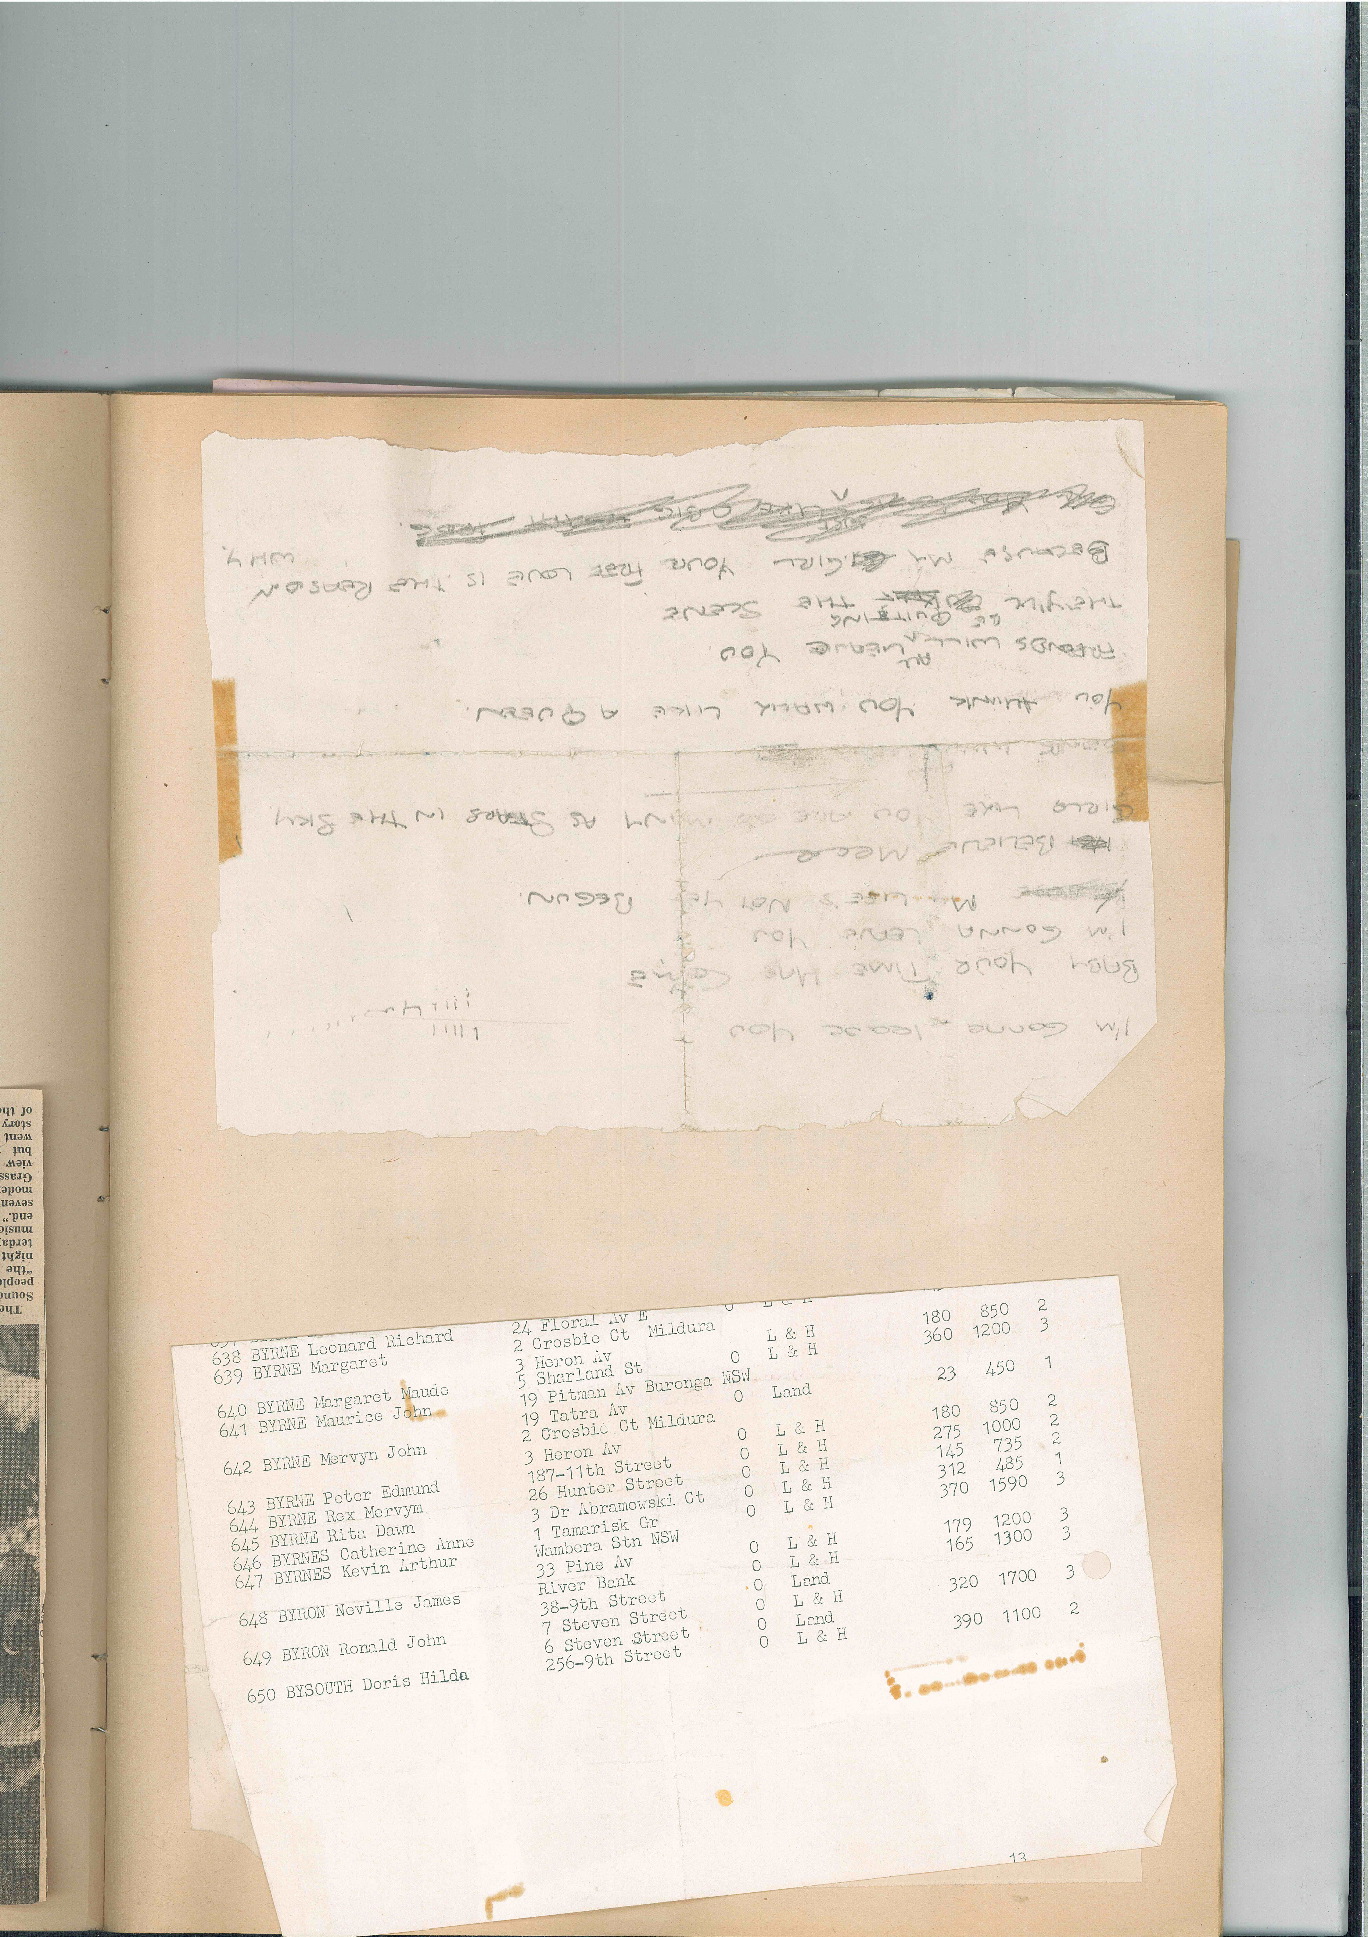 I'M GONNA leave YOU
BABY YOUR TIME HAS COME
I'M GONNA LEAVE YOU
MY LIFE'S NOT YET BEGUN.
BELIEVE ME
GIRLS LIKE YOU ARE AS MANY AS STARS IN THE SKY
YOU THINK YOU WALK LIKE A QUEEN.
FRIENDS WILL ALL LEAVE YOU.
THEY'LL BE QUITTING THE SCENE
BECAUSE MY GIRL YOUR LOVE IS THE REASON
WHY.
638 BYRNE Leonard Richard 24 Floral Av E
639 BYRNE Margaret 2 Crosbie Ct Mildura 180 850 2
3 Heron Av L & H 360 1200 3
5 Sharland St 0 L & H
640 BYRNE Margaret Maude 19 Pitman Av Buronga NSW
641 BYRNE Maurice John 19 Tatra Av 0 Land 23 450 1
2 Crosbie Ct Mildura
642 BYRNE Mervyn John 3 Heron Av 0 L & H 180 850 2
187-11th Street 0 L & H 275 1000 2
643 BYRNE Peter Edmund 26 Hunter Street 0 L & H 145 735 2
644 BYRNE Rex Mervym 3 Dr Abramowski Ct 0 L & H 312 485 1
645 BYRNE Rita Dawn 1 Tamarisk Gr 0 L & H 370 1590 3
646 BYRNES Catherine Anne Wambera Stn NSW
647 BYRNES Kevin Arthur 33 Pine Av 0 L & H 179 1200 3
River Bank 0 L & H 165 1300 3
648 BYRON Neville James 38-9th Street 0 Land
7 Steven Street 0 L & H 320 1700 3
649 BYRON Ronald John 6 Steven Street 0 Land
256-9th Street 0 L & H 390 1100 2
650 BYSOUTH Doris Hilda
13
The
Sound
people
"the
night
terda
music
end."
seven
mode
Grass
view
but
went
story
of the